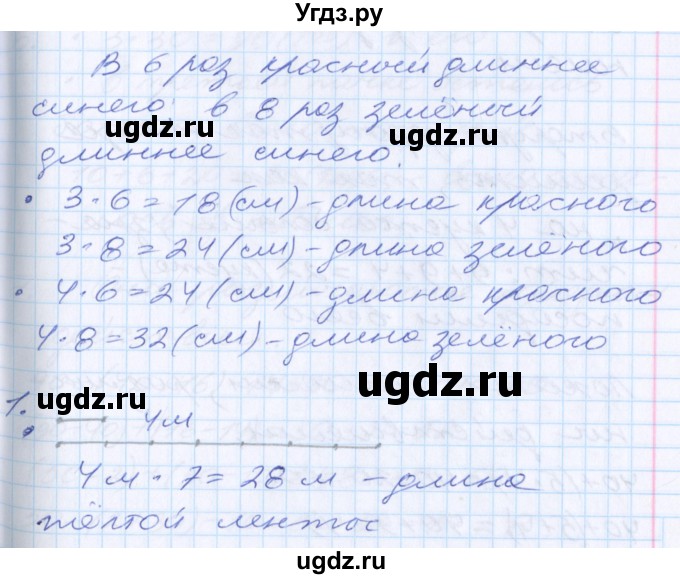 Угдз.ру
В 6 раз красный длиннее
синего, в 8 раз зелёный
ugdz.ru
ugdz.ru
длиннее синего.
• 3·6=18(см)-длина красного
3·8=24(см)-длина зелёного
• 4·6=24(см)-длина красного
4·8=32(см)-длина зелёного
ugdz.ru
ugdz.ru
1. 4м
4м·7=28м-длина
жёлтой ленты
ugdz.ru
ugdz.ru
ugdz.ru